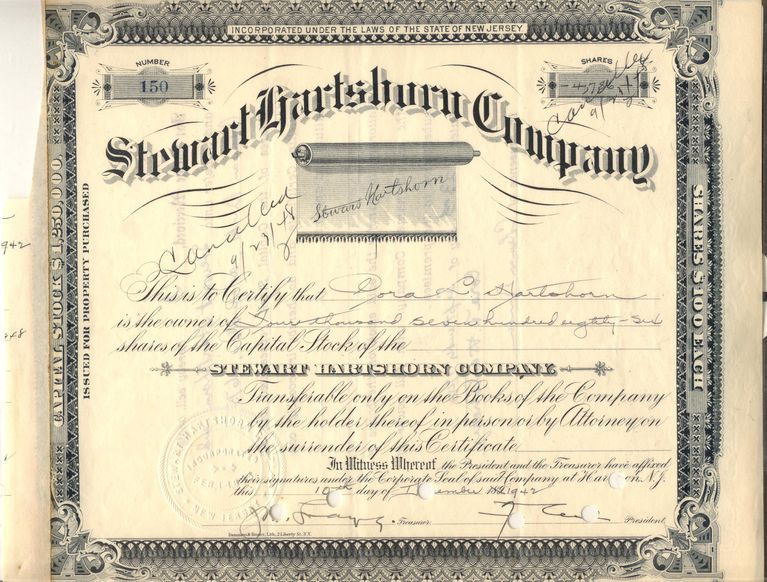 INCORPORATED UNDER THE LAWS OF THE STATE OF NEW JERSEY
NUMBER
150
SHARES
-4786-
Cancelled
9/23/48
Stewart Hartshorn Company
Stewart Hartshorn
Cancelled
9/23/48
CAPITAL STOCK $1,250,000.
ISSUED FOR PROPERTY PURCHASED
SHARES $100 EACH
1942
This is to Certify that Cora L. Hartshorn
is the owner of Four thousand seven hundred eighty-six
shares of the Capital Stock of the
STEWART HARTSHORN COMPANY.
Transferable only on the Books of the Company
by the holder thereof in person or by Attorney on
the surrender of this Certificate
In Witness Whereof the President and the Treasurer have affixed
their signatures under the Corporate Seal of said Company at Harrison, N.J.
this 10th day of December 1942
Treasurer.
President.